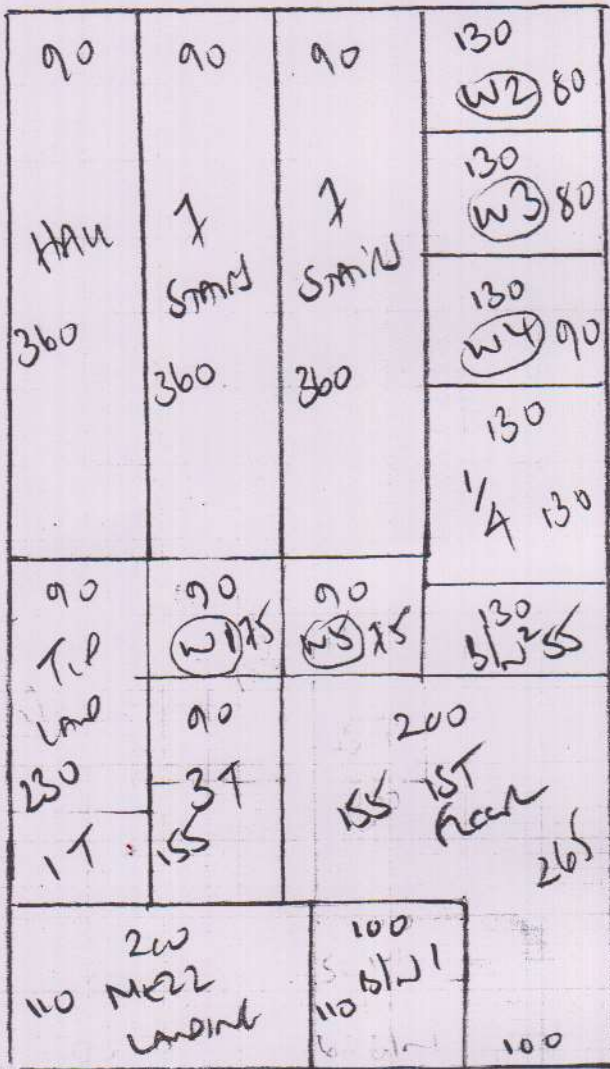 90
HALL
360
90
7
STAIRS
360
90
7
STAIRS
360
130
W2 80
130
W3 80
130
W4 90
130
1/4 130
90
TOP
LAND
230
1T
90
W1 75
90
W5 75
130
B/W2 55
90
3T
155
200
155 1ST
FLOOR
265
100
200
110 MEZZ
LANDING
100
B/W1
110